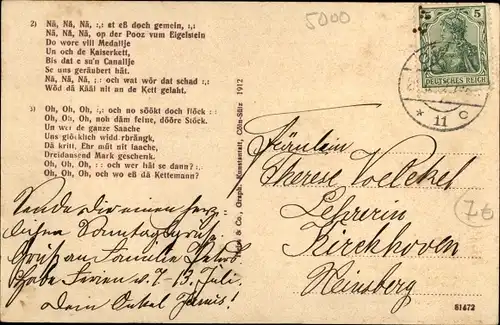 5000
2) Nä, Nä, Nä, :,: at eß doch gemein, :,:
Nä, Nä, Nä, op der Pooz vum Eigelstein
Do wore vill Medallje
Un och de Kaiserkett,
Bis dat e su'n Canallje
Se uns geräubert hät.
Nä, Nä, Nä, ;: och wat wör dat schad :,:
Wöd dä Kääl nit an de Kett gelaht.
3) Oh, Oh, Oh, :,: och no söökt doch flöck : :
Oh, Oh, Oh, noh däm feine, dööre Stöck.
Un wer de ganze Saache
Uns glöcklich widd rbrängk,
Dä kritt, Ehr müt nit laache,
Dreidausend Mark geschenk.
Oh, Oh, Oh, : : och wer hät se dann? :,:
Oh, Oh, Oh, och wo eß dä Kettemann?
& Co., Graph. Kunstanstalt, Cöln-Sülz 1912
5 5
DEUTSCHES REICH
* 11 c
Fräulein
Therese Voelchel
Lehrerin
Kirchhoven
Heinsberg
76
Sende dir einen herz-
lichen Sonntagsgruß
Gruß an Familie
habe Ferien v. 7-13. Juli.
Dein Onkel
51472